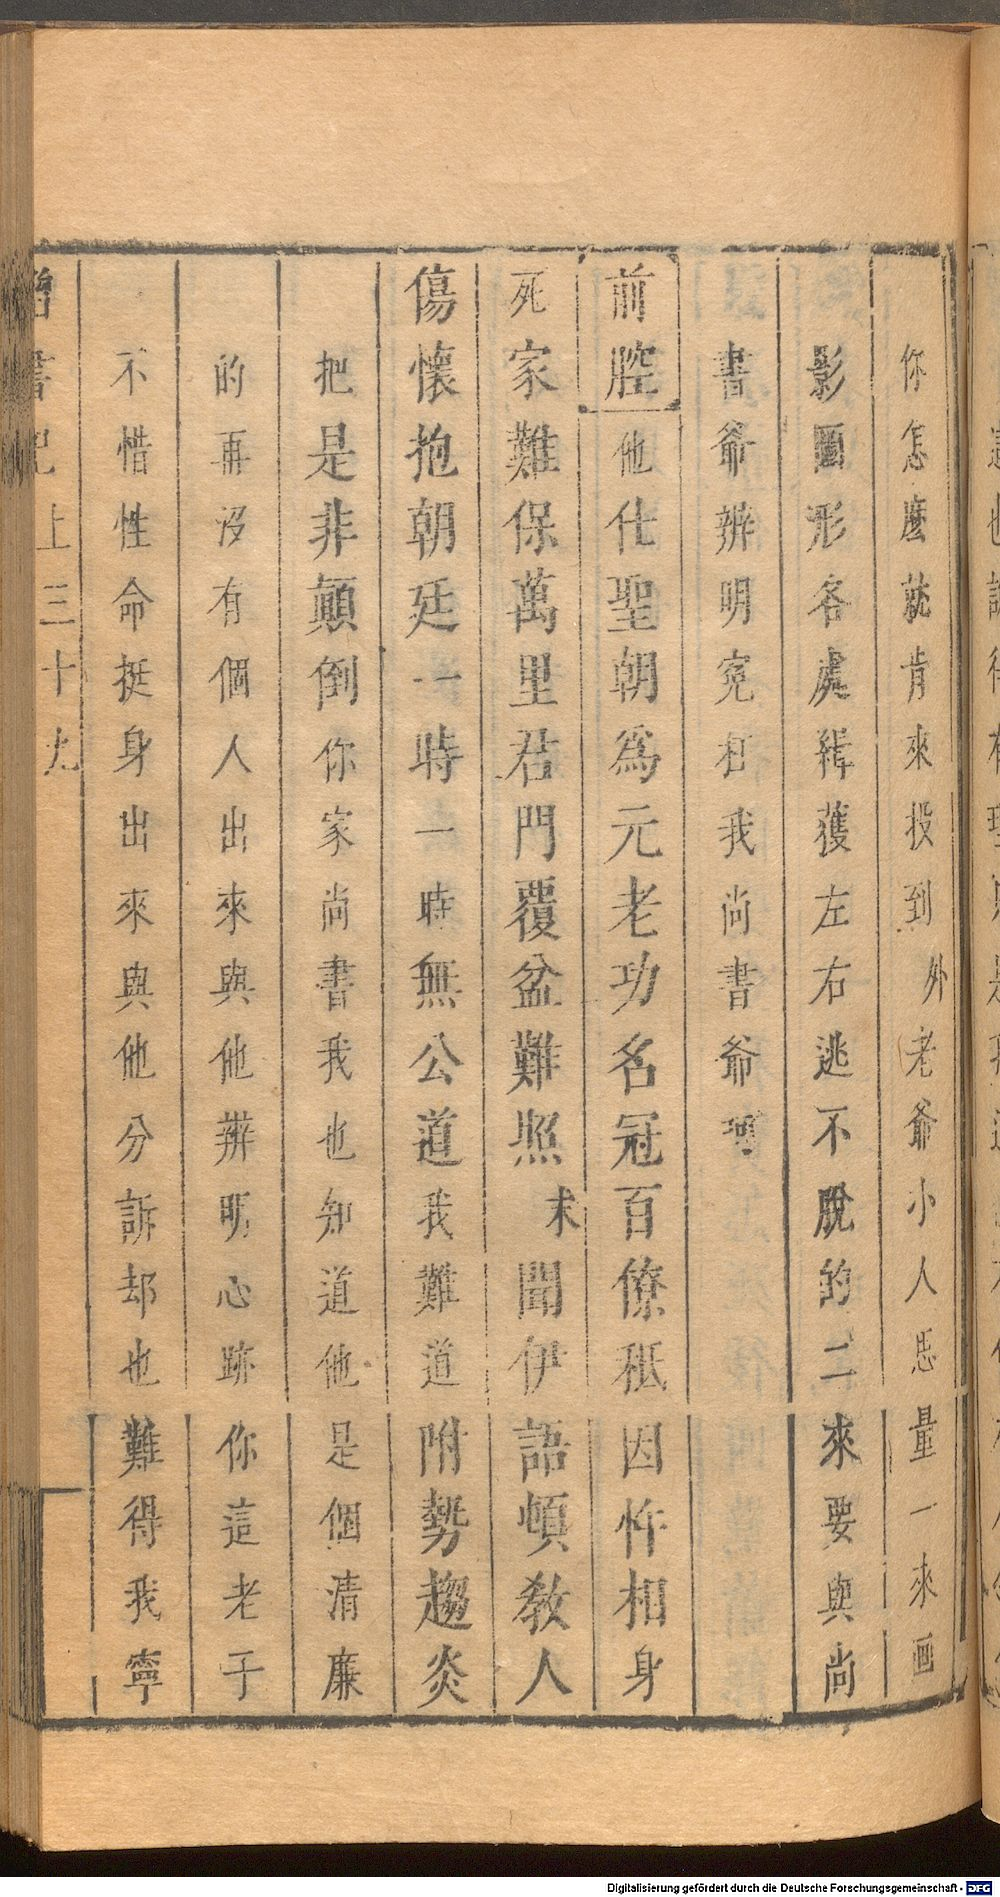 你怎麽就肯來投到外老爺小人思量一來画
影圖形各處緝獲左右逃不脫的二來要與尚
書爺辨明冤枉我尚書爺呵
前腔他仕聖朝爲元老功名冠百僚秪因忤相身
死家難保萬里君門覆盆難照末聞伊語頓敎人
傷懷抱朝廷一時一時無公道我難道附勢趨炎
把是非顛倒你家尚書我也知道他是個清廉
的再沒有個人出來與他辨明心跡你這老子
不惜性命挺身出來與他分訴却也難得我寧
書記上三十九
Digitalisierung gefördert durch die Deutsche Forschungsgemeinschaft - DFG